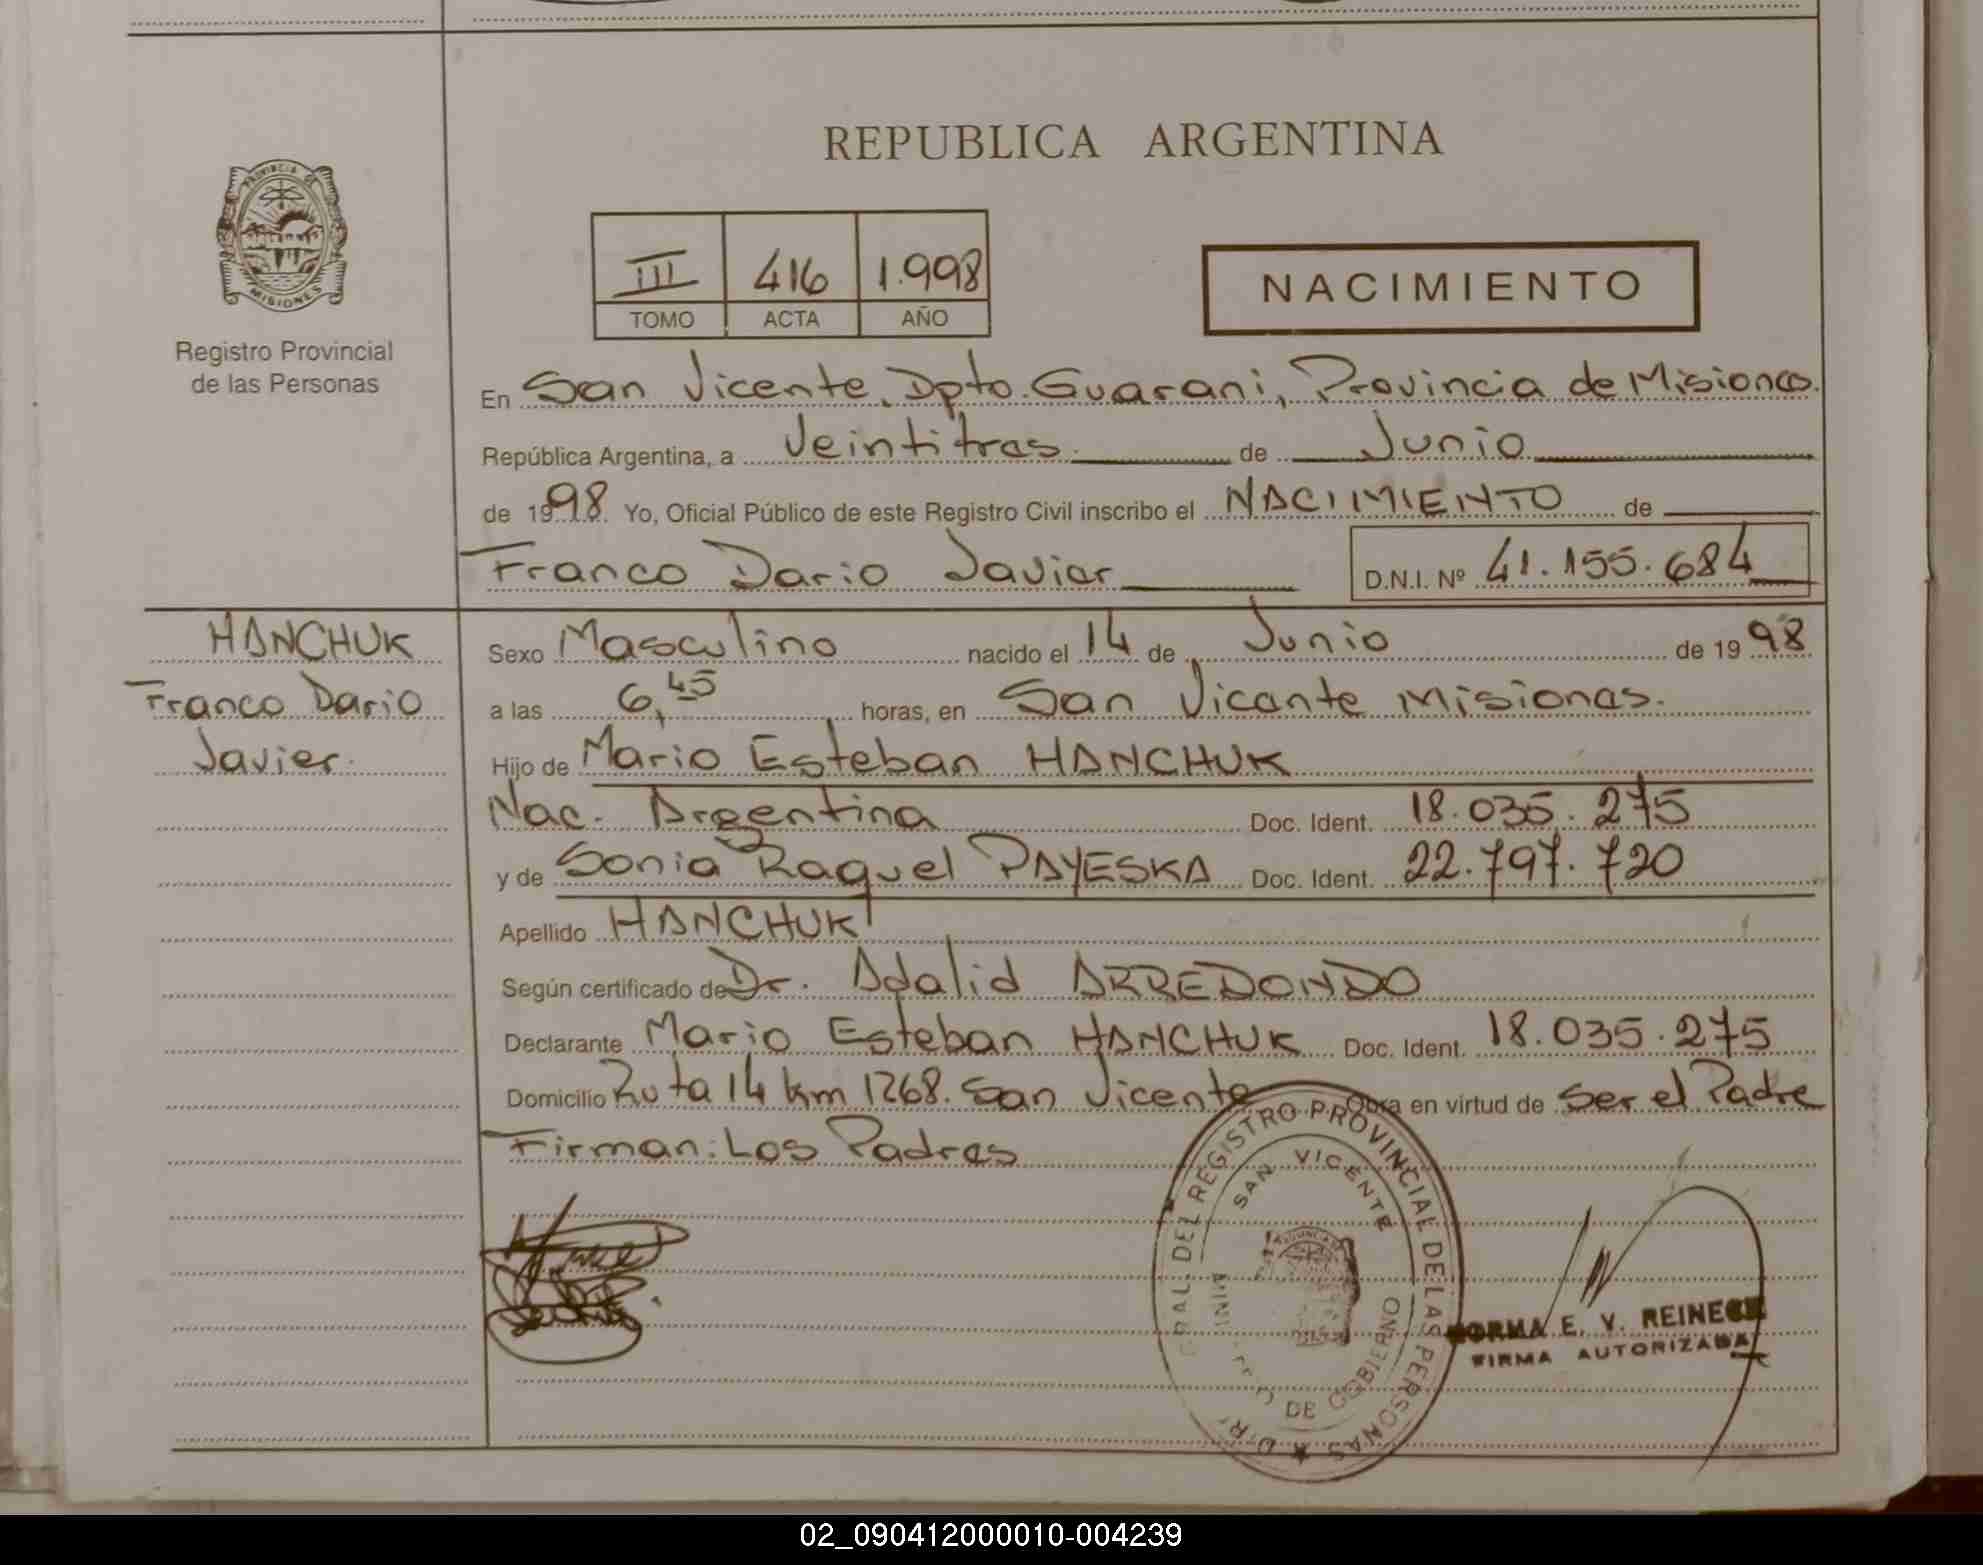 REPUBLICA ARGENTINA
PROVINCIA DE
MISIONES
Registro Provincial
de las Personas
III 416 1.998
TOMO ACTA AÑO
NACIMIENTO
En San Vicente, Dpto. Guarani, Provincia de Misiones.
República Argentina, a Veintitres de Junio
de 1998. Yo, Oficial Público de este Registro Civil inscribo el NACIMIENTO de
Franco Dario Javier D.N.I. Nº 41.155.684
HANCHUK
Franco Dario
Javier.
Sexo Masculino nacido el 14 de Junio de 1998
a las 6,45 horas, en San Vicente Misiones.
Hijo de Mario Esteban HANCHUK
Nac. Argentina Doc. Ident. 18.035.275
y de Sonia Raquel PAYESKA Doc. Ident. 22.797.720
Apellido HANCHUK
Según certificado de Dr. Adalid ARREDONDO
Declarante Mario Esteban HANCHUK Doc. Ident. 18.035.275
Domicilio Ruta 14 km 1268. San Vicente Obra en virtud de Ser el Padre
Firman: Los Padres
GRAL. DEL REGISTRO PROVINCIAL DE LAS PERSONAS
SAN VICENTE
DE GOBIERNO
NORMA E. V. REINECK
FIRMA AUTORIZADA
02_090412000010-004239